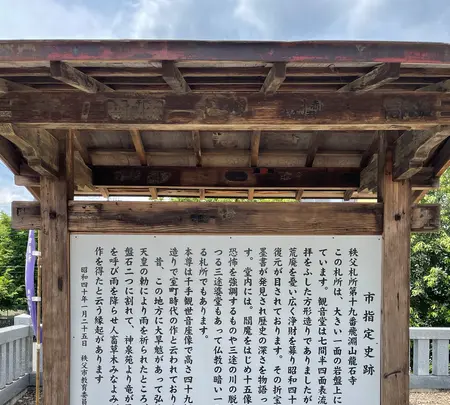 市指定史跡
秩父札所第十九番飛淵山龍石寺
この札所は、大きい一面の岩盤上に
ています。観音堂は七間半四面表流
拝をふした方形造りでありましたが
荒廃を憂い広く浄財を募り昭和四十
復元が目されております。その折宝
墨書が発見され歴史の深さを物語っ
す。堂内には、閻魔をはじめ十五像
恐怖を強調するものや三途の川の脱
つる三途婆堂もあって仏教の暗い一
る札所でもあります。
本尊は千手観世音座像で高さ四十九
造りで室町時代の作と云われており
昔、この地方に大旱魃があって弘
天皇の勅により雨を祈られたところ
盤石二つに割れて、神泉苑より竜が
を呼び雨を降らせ人畜草木みなよみ
作を得たと云う縁起があります
昭和四十年一月二十五日 秩父市教育委員